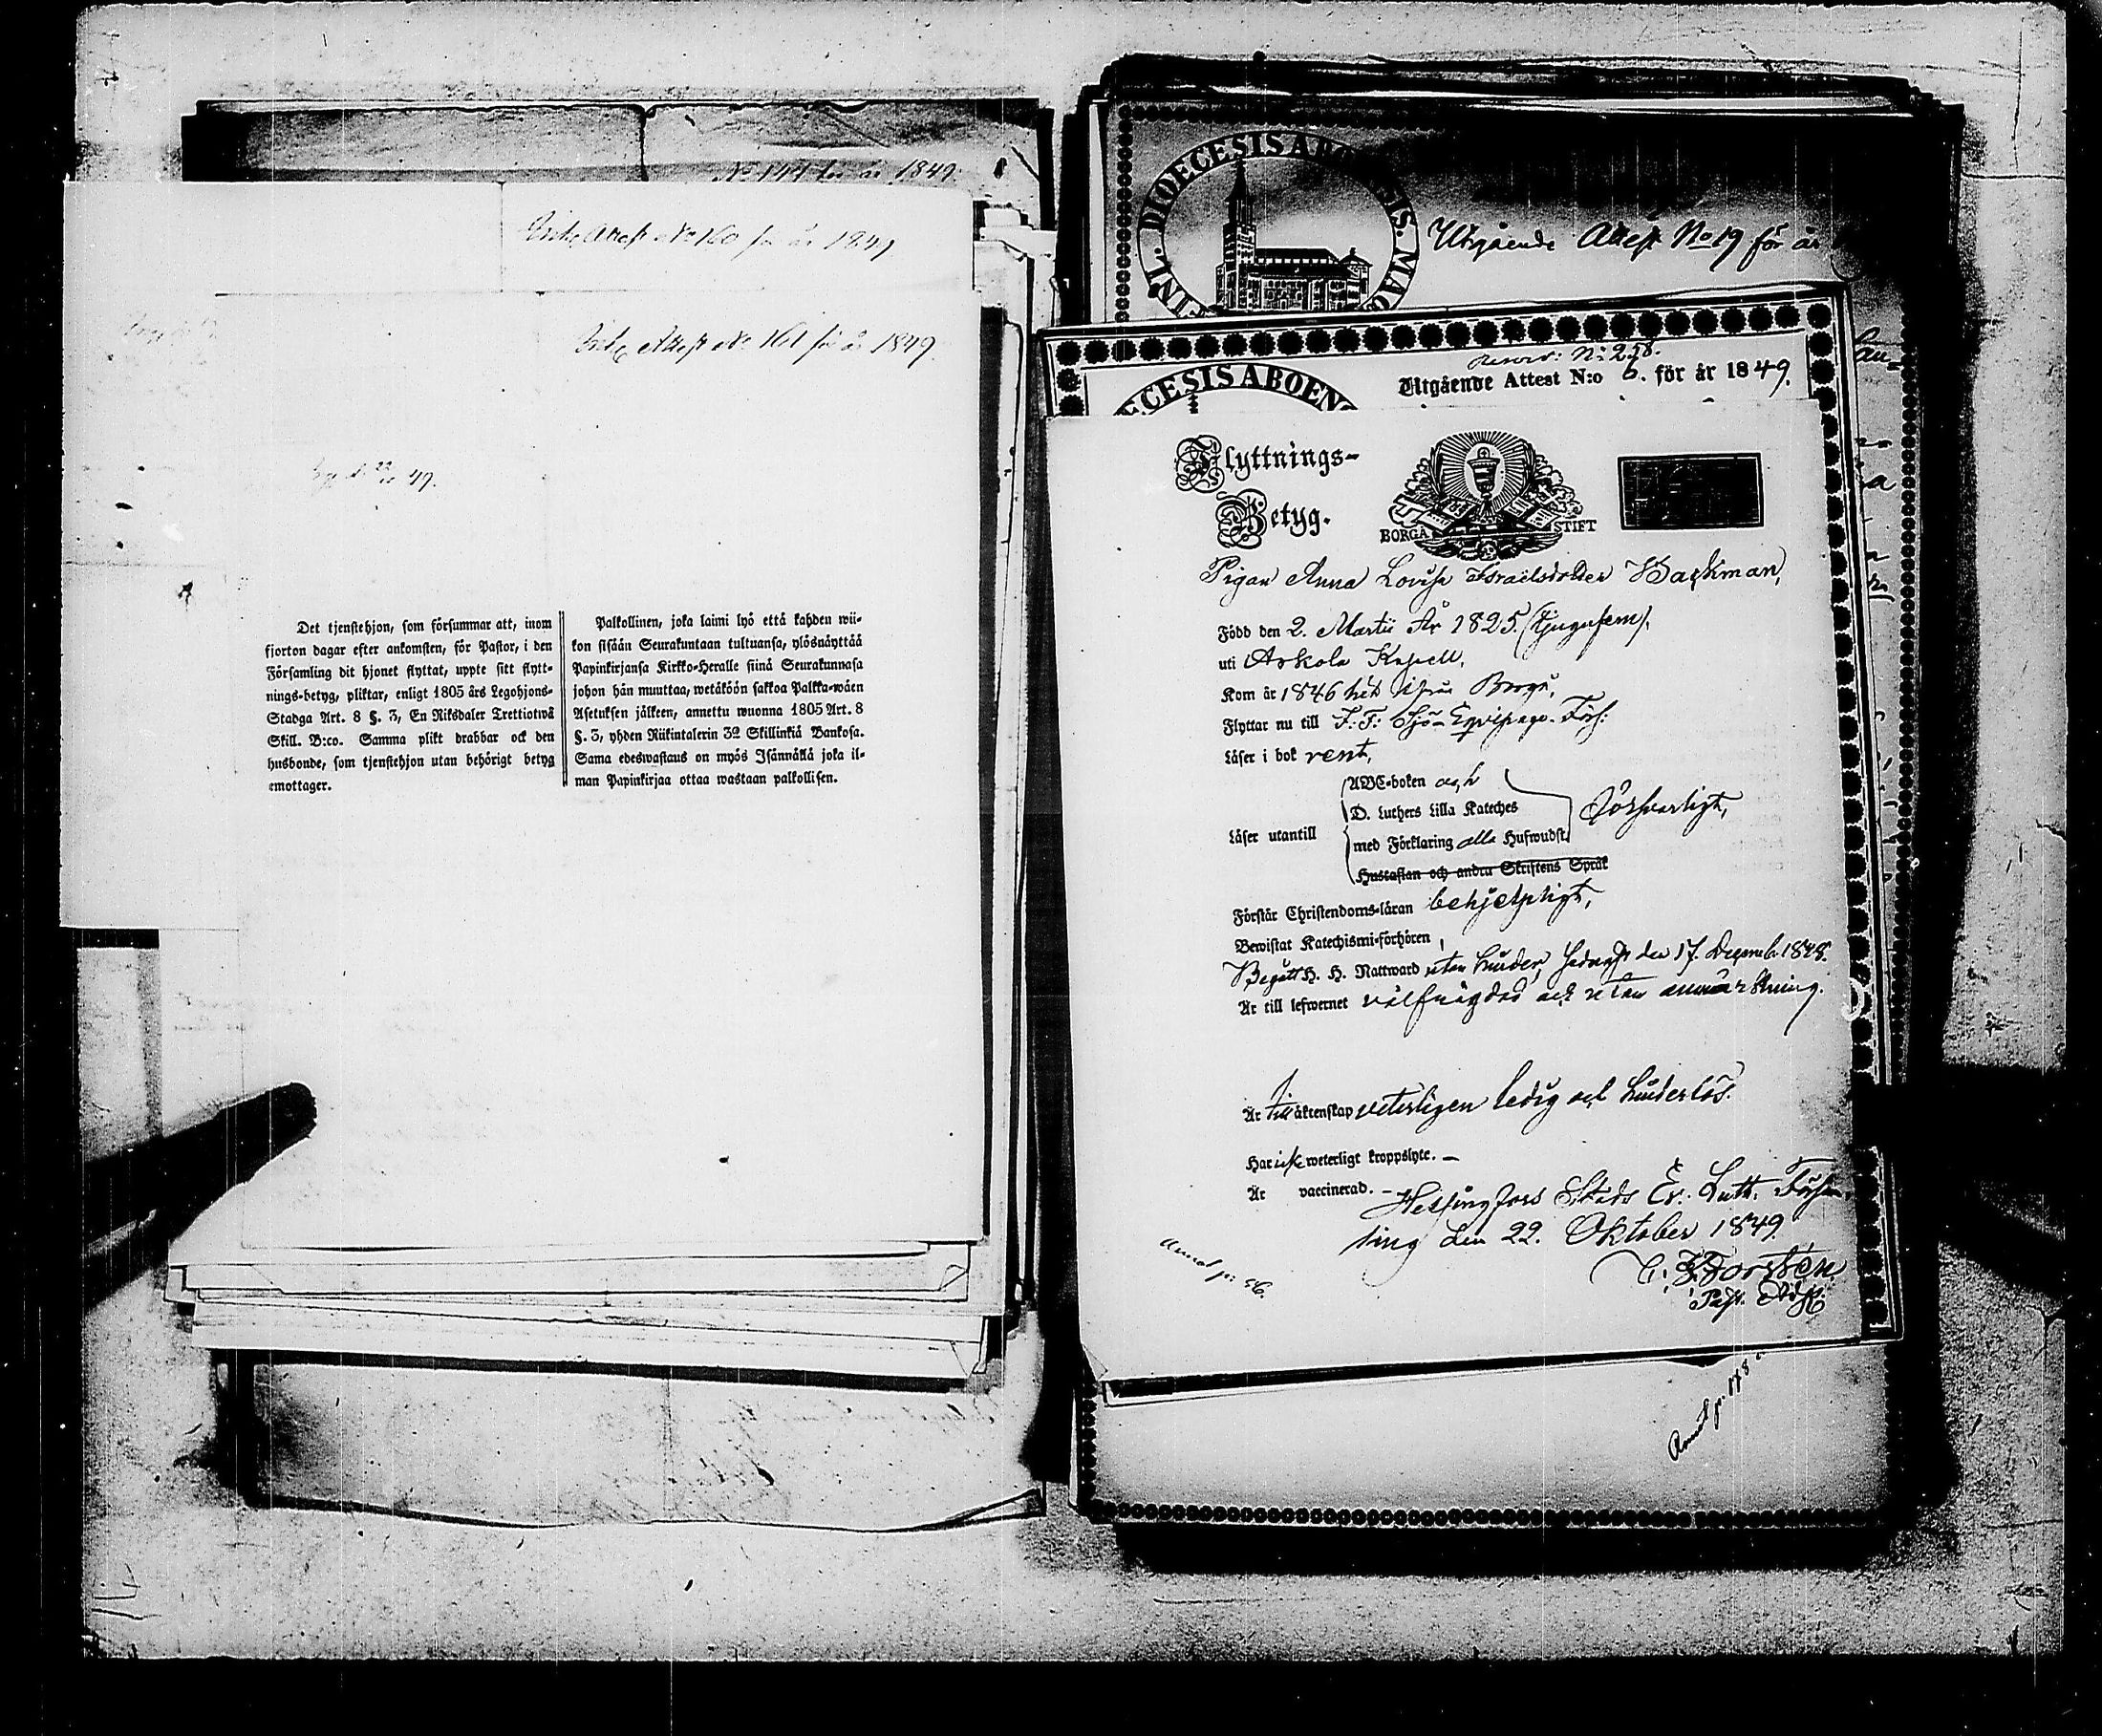 No 144 för år 1849.
Attest No 160 för år 1849
Attest No 161 för år 1849
49.
Det tjenstehjon, som försummar att, inom
fjorton dagar efter ankomsten, för Pastor, i den
Församling dit hjonet flyttat, uppte sitt flytt-
nings-betyg, pliktar, enligt 1805 års Legohjons-
Stadga Art. 8 §. 3, En Riksdaler Trettiotwå
Skill. B:co. Samma plikt drabbar ock den
husbonde, som tjenstehjon utan behörigt betyg
emottager.
Palkollinen, joka laimi lyö että kahden wii-
kon sisään Seurakuntaan tultuansa, ylösnäyttää
Papinkirjansa Kirkko-Heralle siinä Seurakunnasa
johon hän muuttaa, wetäköön sakkoa Palkka-wäen
Asetuksen jälkeen, annettu wuonna 1805 Art. 8
§. 3, yhden Riikintalerin 32 Skillinkiä Bankosa.
Sama edeswastaus on myös Isännällä joka il-
man Papinkirjaa ottaa wastaan palkollisen.
DIOECESIS
Utgående Attest No 19 för år
Reserv: No 258.
DIOECESIS ABOENS
Utgående Attest N:o 6. för år 1849.
Flyttnings-
Betyg.
BORGÅ STIFT
Pigan Anna Lovisa Israelsdotter Backman,
Född den 2. Martii År 1825. (tjugufem),
uti Askola Kapell,
Kom år 1846 hit ifrån Borgå,
Flyttar nu till F: F: Sjö-Eqvipage-Förs:
Läser i bok rent,
Läser utantill
ABC-boken och
D. Luthers Lilla Kateches
med Förklaring alla Hufwudst.
Hustaflan och andra Skriftens Språk
försvarligt,
Förstår Christendoms-läran behjelpligt,
Bewistat Katechismi-förhören,
Begått H. H. Nattward utan hinder, sednast den 17. Decemb. 1848.
Är till lefwernet välfrägdad och utan anmärkning.
Är till äktenskap veterligen ledig och hinderlös.
Har icke weterligt kroppslyte. —
Är vaccinerad. —
Helsingfors Stads Ev. Luth. Försam-
ling den 22. Oktober 1849.
Forstén
Past. Adj.
Annot p: 56.
Annot p: 178